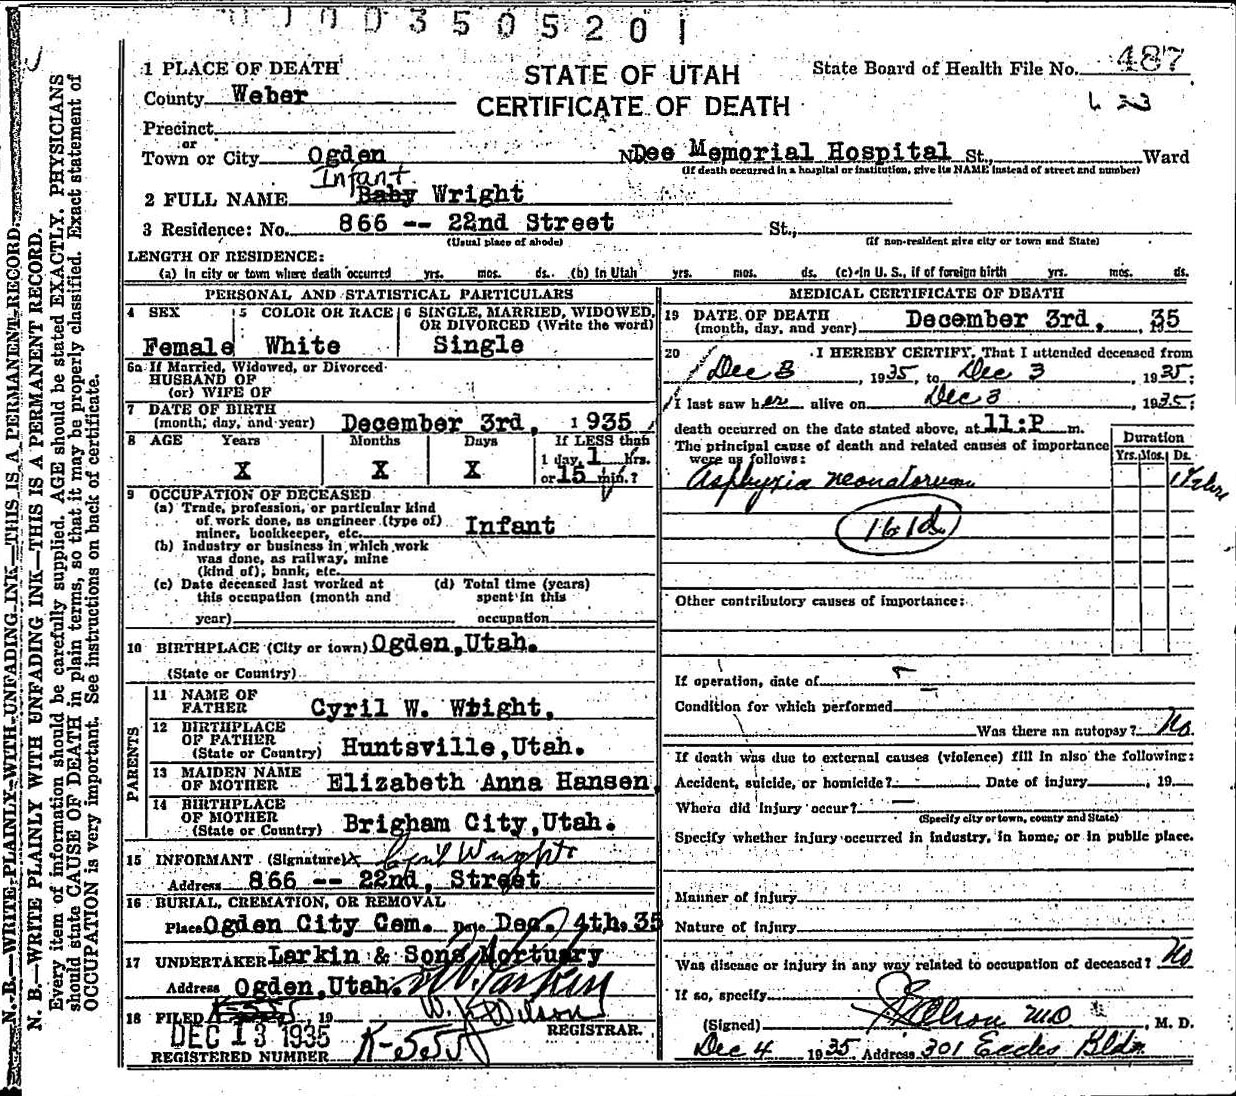 0003505201
1 PLACE OF DEATH
STATE OF UTAH
CERTIFICATE OF DEATH
State Board of Health File No. 487
County Weber
Precinct
or
Town or City Ogden No Dee Memorial Hospital St., Ward
(If death occurred in a hospital or institution, give its NAME instead of street and number)
Infant
2 FULL NAME Baby Wright
3 Residence: No. 866 -- 22nd Street St.,
(Usual place of abode) (If non-resident give city or town and State)
LENGTH OF RESIDENCE:
(a) In city or town where death occurred yrs. mos. ds. (b) In Utah yrs. mos. ds. (c) In U. S., if of foreign birth yrs. mos. ds.
PERSONAL AND STATISTICAL PARTICULARS
4 SEX Female
5 COLOR OR RACE White
6 SINGLE, MARRIED, WIDOWED, OR DIVORCED (Write the word)
Single
6a If Married, Widowed, or Divorced
HUSBAND OF
(or) WIFE OF
7 DATE OF BIRTH
(month, day, and year) December 3rd, 1935
8 AGE Years Months Days If LESS than
X X X 1 day, 1 hrs.
or 15 min.?
9 OCCUPATION OF DECEASED
(a) Trade, profession, or particular kind
of work done, as engineer (type of)
miner, bookkeeper, etc. Infant
(b) Industry or business in which work
was done, as railway, mine
(kind of), bank, etc.
(c) Date deceased last worked at
this occupation (month and
year)
(d) Total time (years)
spent in this
occupation
10 BIRTHPLACE (City or town) Ogden, Utah.
(State or Country)
PARENTS
11 NAME OF
FATHER Cyril W. Wright,
12 BIRTHPLACE
OF FATHER
(State or Country) Huntsville, Utah.
13 MAIDEN NAME
OF MOTHER Elizabeth Anna Hansen,
14 BIRTHPLACE
OF MOTHER
(State or Country) Brigham City, Utah.
15 INFORMANT (Signature) x Cyril Wright
Address 866 -- 22nd, Street
16 BURIAL, CREMATION, OR REMOVAL
Place Ogden City Cem. Date Dec. 4th. 35
17 UNDERTAKER Larkin & Sons Mortuary
Address Ogden, Utah.
18 FILED , 19
DEC 13 1935 REGISTRAR.
REGISTERED NUMBER K-555
MEDICAL CERTIFICATE OF DEATH
19 DATE OF DEATH
(month, day, and year) December 3rd, 35
20 I HEREBY CERTIFY, That I attended deceased from
Dec 3, 1935, to Dec 3, 1935;
I last saw her alive on Dec 3, 1935;
death occurred on the date stated above, at 11:P m.
The principal cause of death and related causes of importance
were as follows:
Duration
Yrs. Mos. Ds.
Asphyxia neonatorum
Other contributory causes of importance:
If operation, date of
Condition for which performed
Was there an autopsy? No
If death was due to external causes (violence) fill in also the following:
Accident, suicide, or homicide? Date of injury , 19
Where did injury occur?
(Specify city or town, county and State)
Specify whether injury occurred in industry, in home, or in public place.
Manner of injury
Nature of injury
Was disease or injury in any way related to occupation of deceased? No
If so, specify
(Signed) MD , M. D.
Dec 4 1935 Address 301 Eccles Bldg
N. B.—WRITE PLAINLY WITH UNFADING INK—THIS IS A PERMANENT RECORD.
N. B.—WRITE PLAINLY WITH UNFADING INK—THIS IS A PERMANENT RECORD.
Every item of information should be carefully supplied. AGE should be stated EXACTLY. PHYSICIANS
should state CAUSE OF DEATH in plain terms, so that it may be properly classified. Exact statement of
OCCUPATION is very important. See instructions on back of certificate.